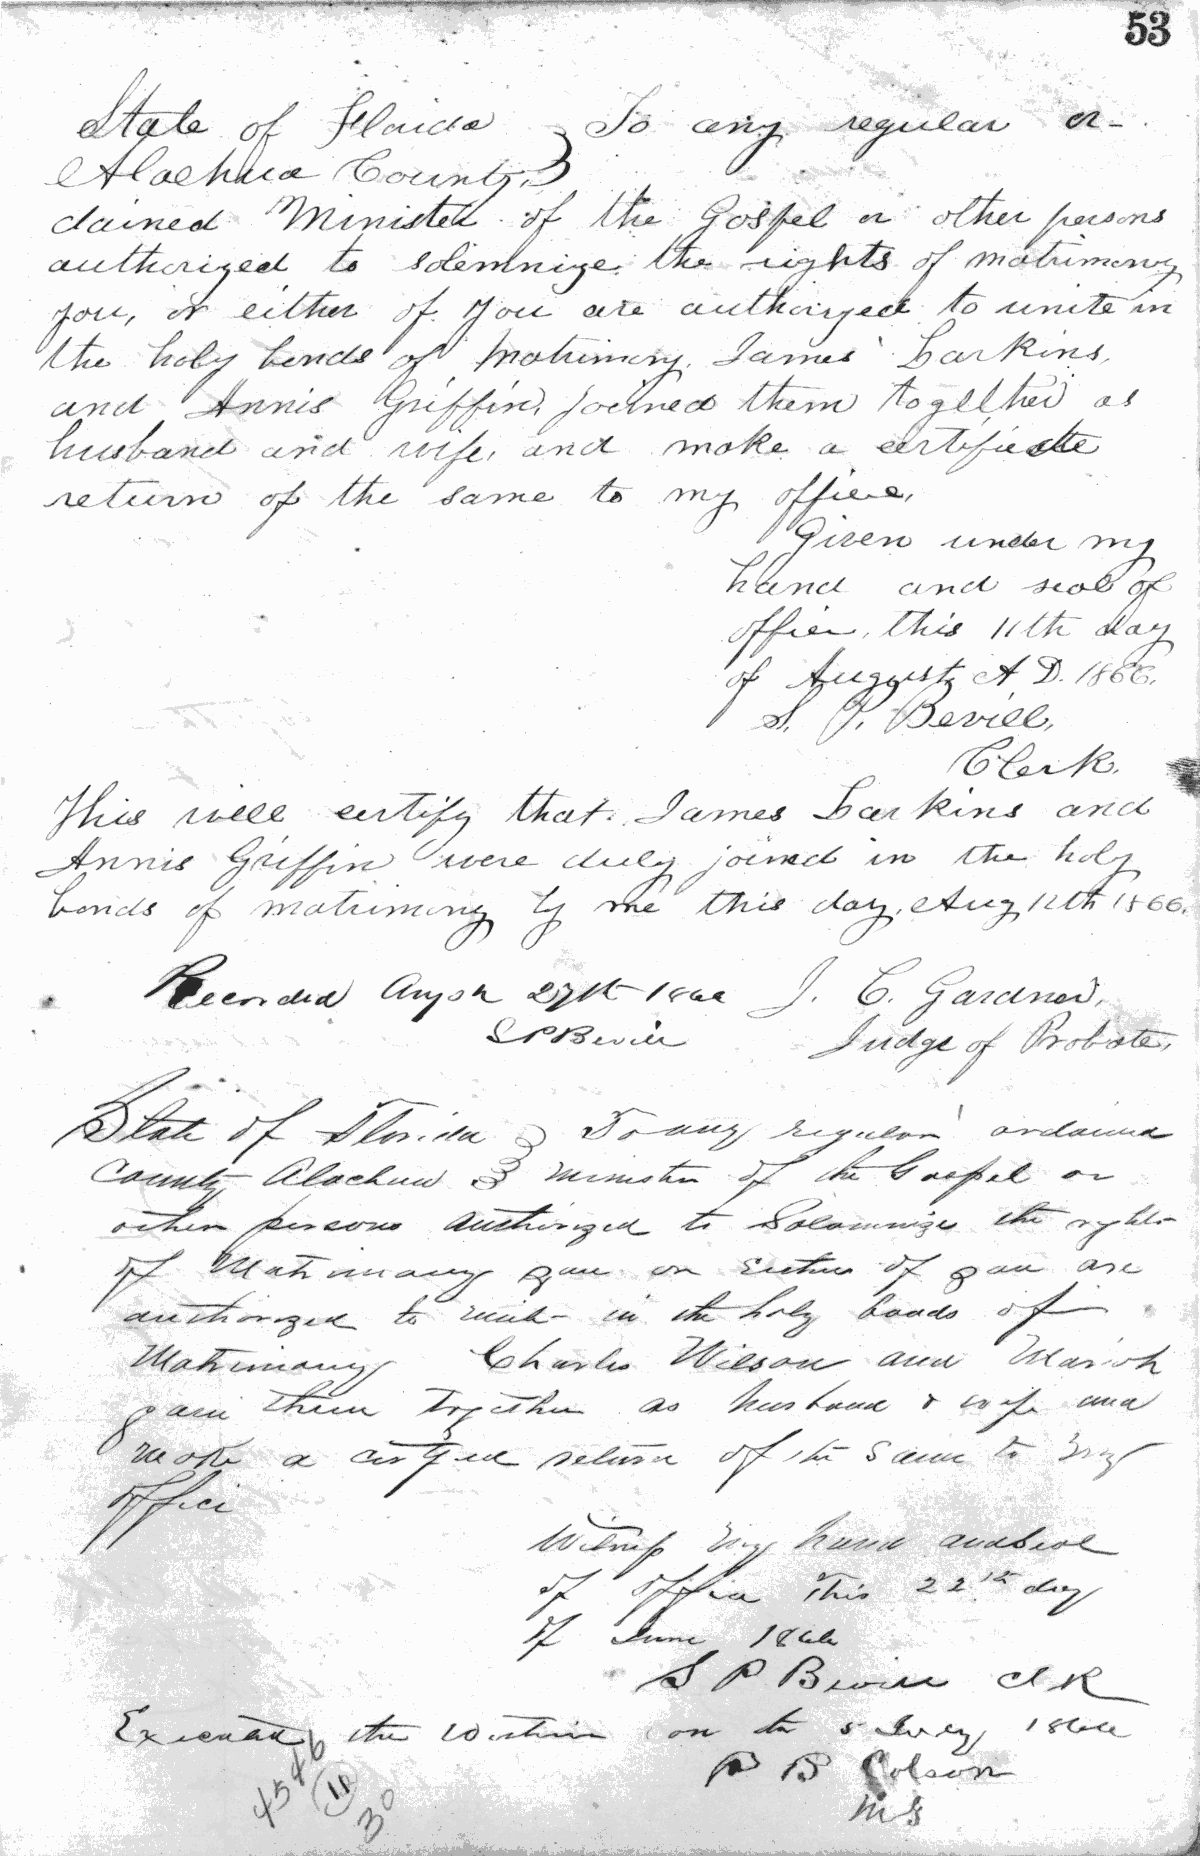 53
State of Florida } To any regular or-
Alachua County, }
dained Minister of the Gospel or other persons
authorized to solemnize the rights of matrimony
you, or either of you are authorized to unite in
the holy bonds of matrimony, James Larkins,
and Annis Griffin, joined them together as
husband and wife, and make a certificate
return of the same to my office,
Given under my
hand and seal of
office, this 11th day
of August A D. 1866.
S. P. Bevill,
Clerk.
This will certify that James Larkins and
Annis Griffin were duly joined in the holy
bonds of matrimony by me this day, Aug 12th 1866.
Recorded 27th 1866 J. C. Gardner,
S P Bevill Judge of Probate,
State of Florida } To any regular ordained
County Alachua } Minister of the Gospel or
other persons Authorized to Solamnize the rights
of Matrimony you or either of you are
authorized to unite in the holy bonds of
Matrimony Charles Wilson and Mariah
join them together as husband & wife and
make a return of the same to my
office
Witness my hand and Seal
of office this 22th day
of June 1866
S P Bevill Clk
Executed the within on the 5 July 1866
P B Colson
M G
4546
11
30